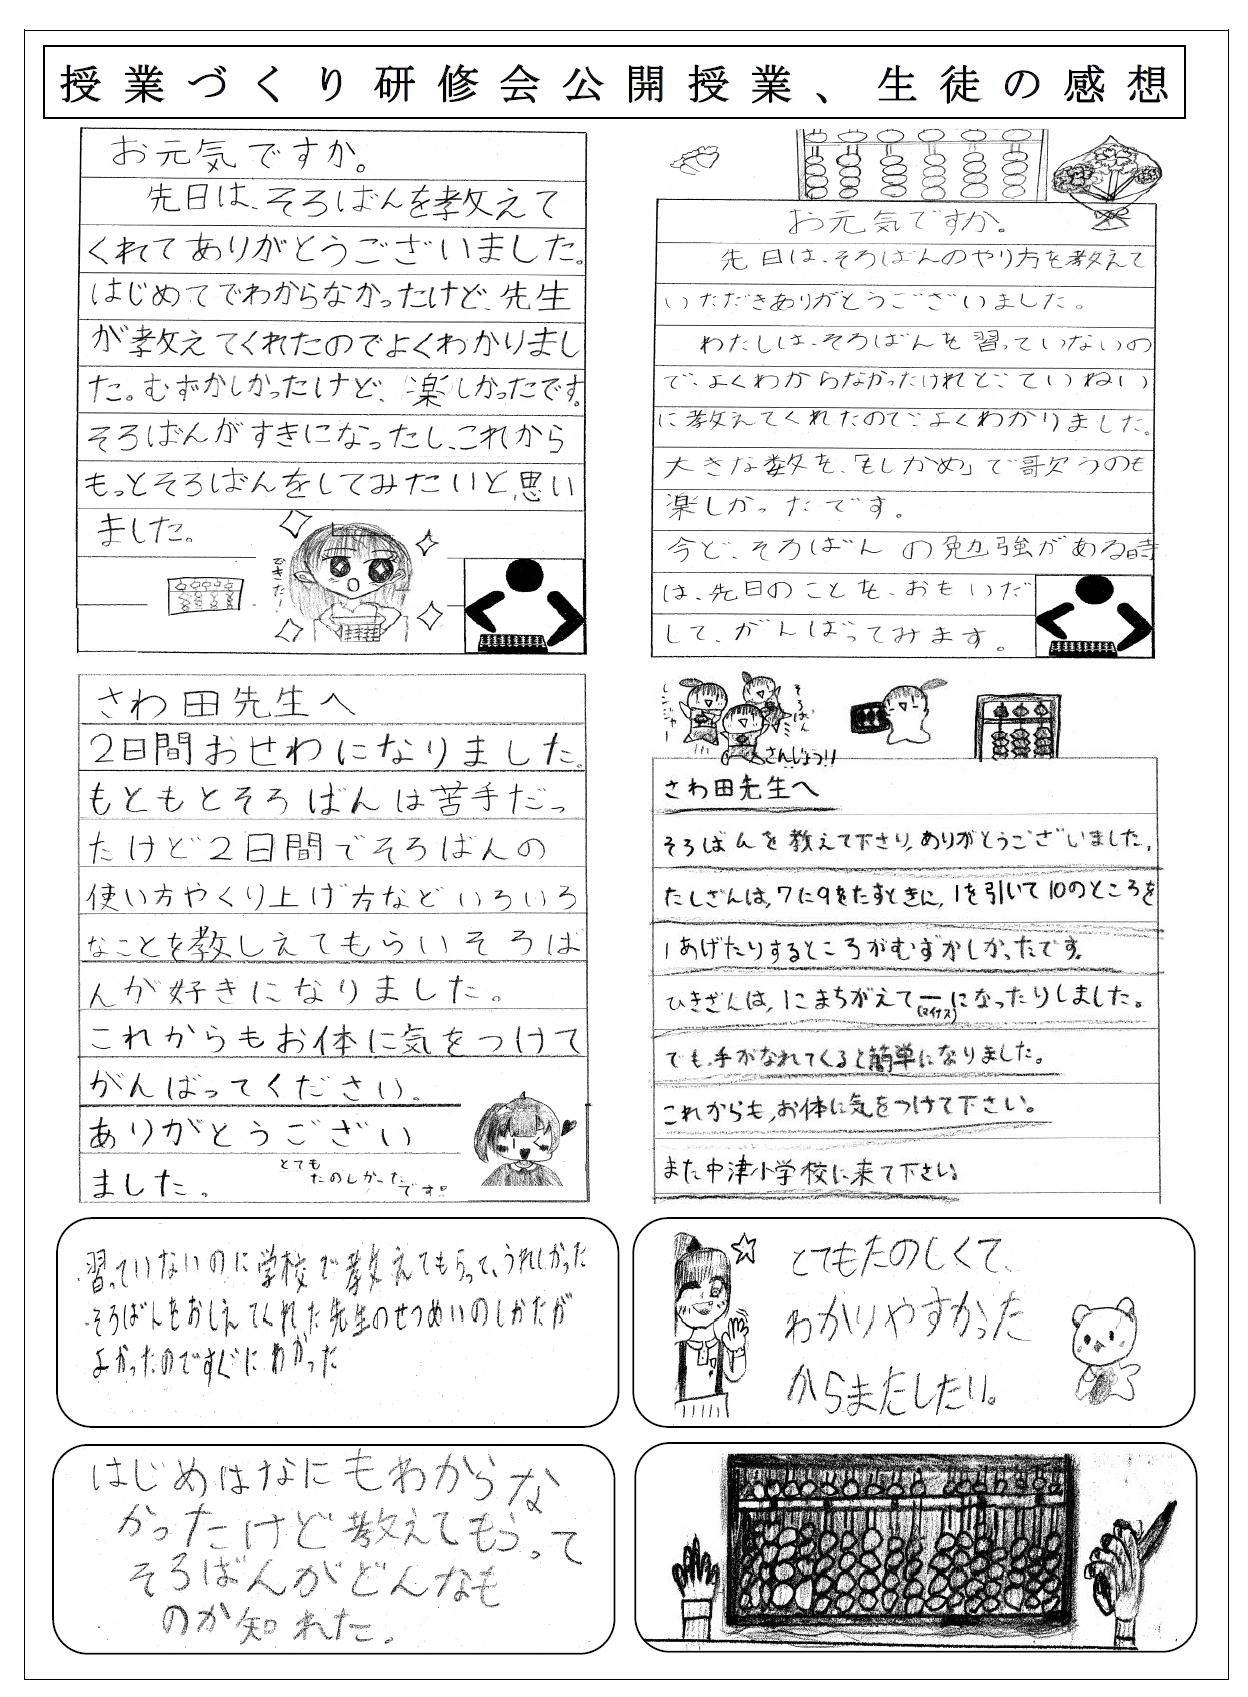 授業づくり研修会公開授業、生徒の感想
お元気ですか。
先日は、そろばんを教えて
くれてありがとうございました。
はじめてでわからなかったけど、先生
が教えてくれたのでよくわかりまし
た。むずかしかったけど、楽しかったです。
そろばんがすきになったし、これから
もっとそろばんをしてみたいと思い
ました。
できたー!
お元気ですか。
先日は、そろばんのやり方を教えて
いただきありがとうございました。
わたしは、そろばんを習っていないの
で、よくわからなかったけれど、ていねい
に教えてくれたので、よくわかりました。
大きな数を、「もしかめ」で歌うのも
楽しかったです。
今ど、そろばんの勉強がある時
は、先日のことを、おもいだ
して、がんばってみます。
さわ田先生へ
2日間おせわになりました。
もともとそろばんは苦手だっ
たけど2日間でそろばんの
使い方やくり上げ方などいろいろ
なことを教しえてもらいそろば
んが好きになりました。
これからもお体に気をつけて
がんばってください。
ありがとうござい
ました。
とても
たのしかった
です!!
そろばん
レンジャー
さんじょう!!
さわ田先生へ
そろばんを教えて下さり、ありがとうございました。
たしざんは、7に9をたすときに、1を引いて10のところを
1あげたりするところがむずかしかったです。
ひきざんは、1こまちがえてー(マイナス)になったりしました。
でも、手がなれてくると簡単になりました。
これからも、お体に気をつけて下さい。
また中津小学校に来て下さい。
習っていないのに学校で教えてもらって、うれしかった
そろばんをおしえてくれた先生のせつめいのしかたが
よかったのですぐにわかった
とてもたのしくて、
わかりやすかった
からまたしたい。
はじめはなにもわからな
かったけど教えてもらって
そろばんがどんなも
のか知れた。